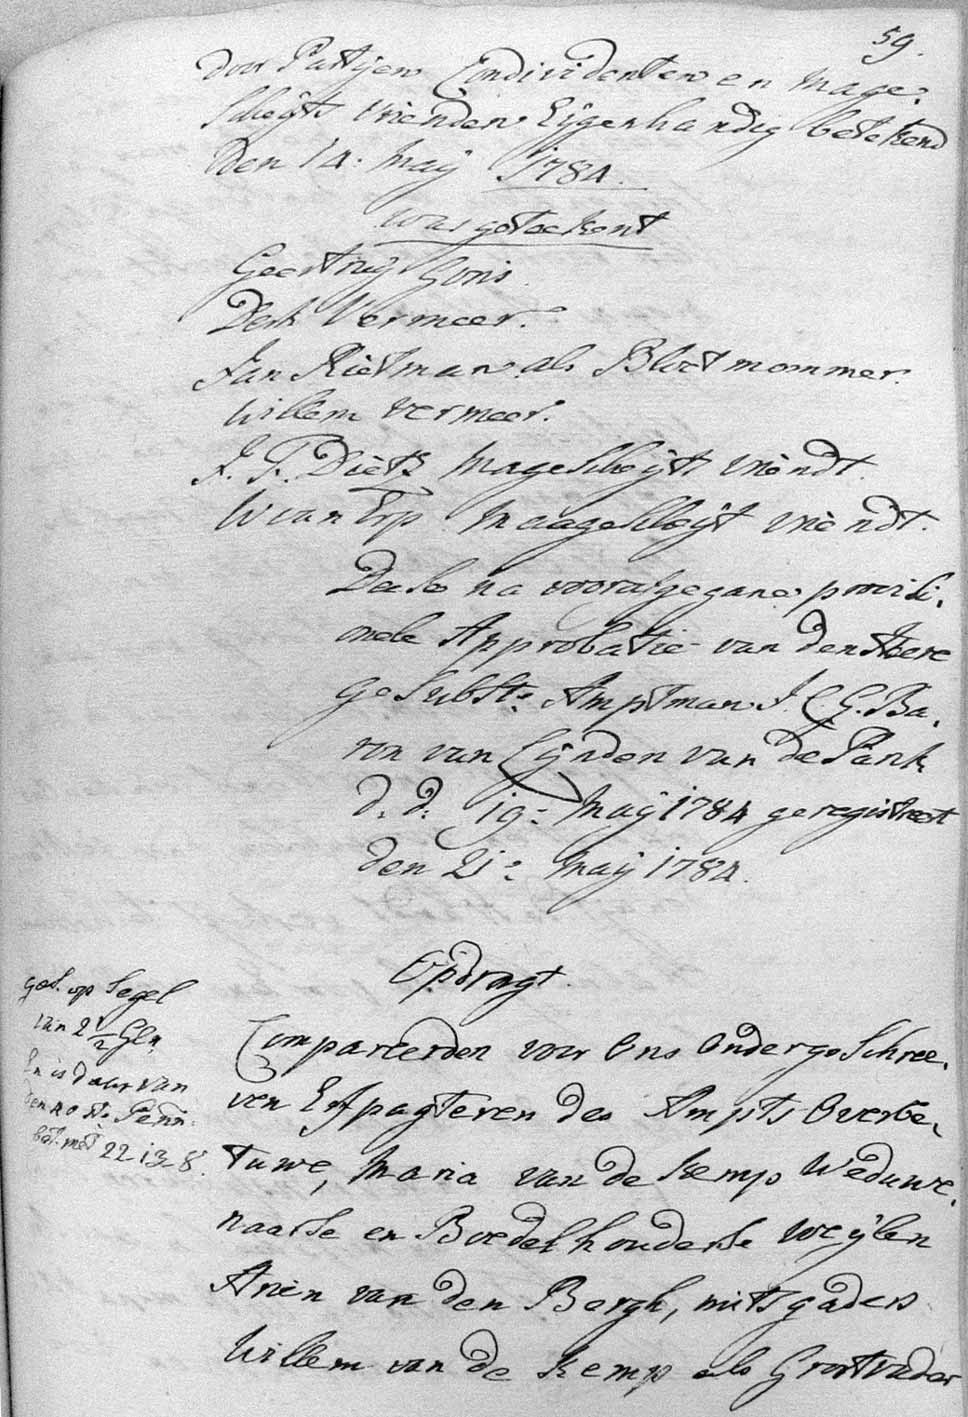 59.
door Partijen Condividenten en mage,
Scheijts vrienden Eijgenhandig betekend
den 14. Maij 1784.
was geteekent
Geertruij Gons.
Derk Vermeer.
Jan Rietman als Bloetmommer.
Willem Vermeer.
J. F. Dietz Mage Scheijts vriendt.
W van Erp Maagescheijt vriendt.
Dese na voorafgegane provisi,
onele Approbatie van den Heere
geSubst: Amptman J. C. G. Ba,
ron van Lijnden van de Park
d. d. 19: Maij 1784 geregistreert
den 21: Maij 1784.
Opdragt.
ges. op Segel
van 2 1/2 Gln
En is daar van
den 40 st. Penn:
bet. met 22 13 8.
Compareerden voor Ons OndergeSchree,
ven Erfpagteren des Ampts Overbe,
tuwe, Maria van de Kemp Weduwe,
naarse en Boedelhouderse Weijlen
Arien van den Bergh, mitsgaders
Willem van de Kemp als Grootvader